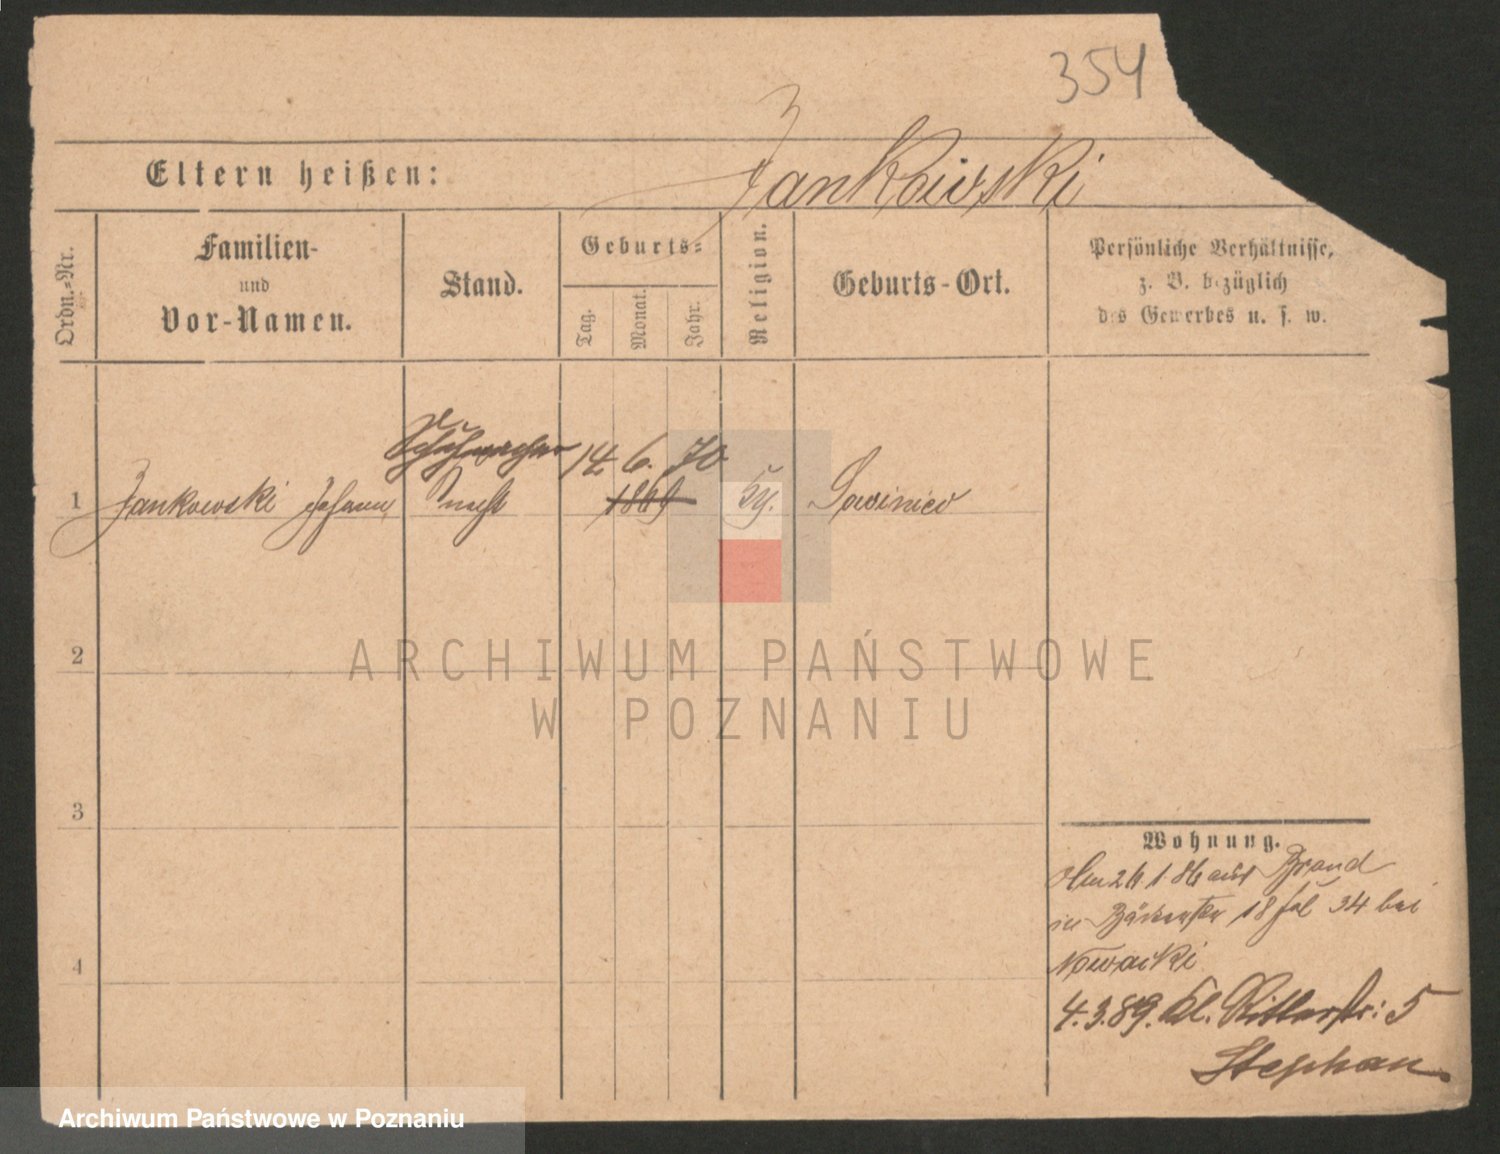 354
Jankowski
Eltern heißen:
Ordn.-Nr.
Familien-
und
Vor-Namen.
Stand.
Geburts-
Tag.
Monat.
Jahr.
Religion.
Geburts-Ort.
Persönliche Verhältnisse,
z. B. bezüglich
des Gewerbes u. s. w.
Schuhmacher 14. 6. 70
1 Jankowski Johann Knecht 1869 Kt. Sowiniec
2
ARCHIWUM PAŃSTWOWE
W POZNANIU
3
Wohnung.
1 86 aus Brand
in 18 34 bei
4
Nowacki
4.3.89. Kl. Ritterstr: 5
Stephan
Archiwum Państwowe w Poznaniu